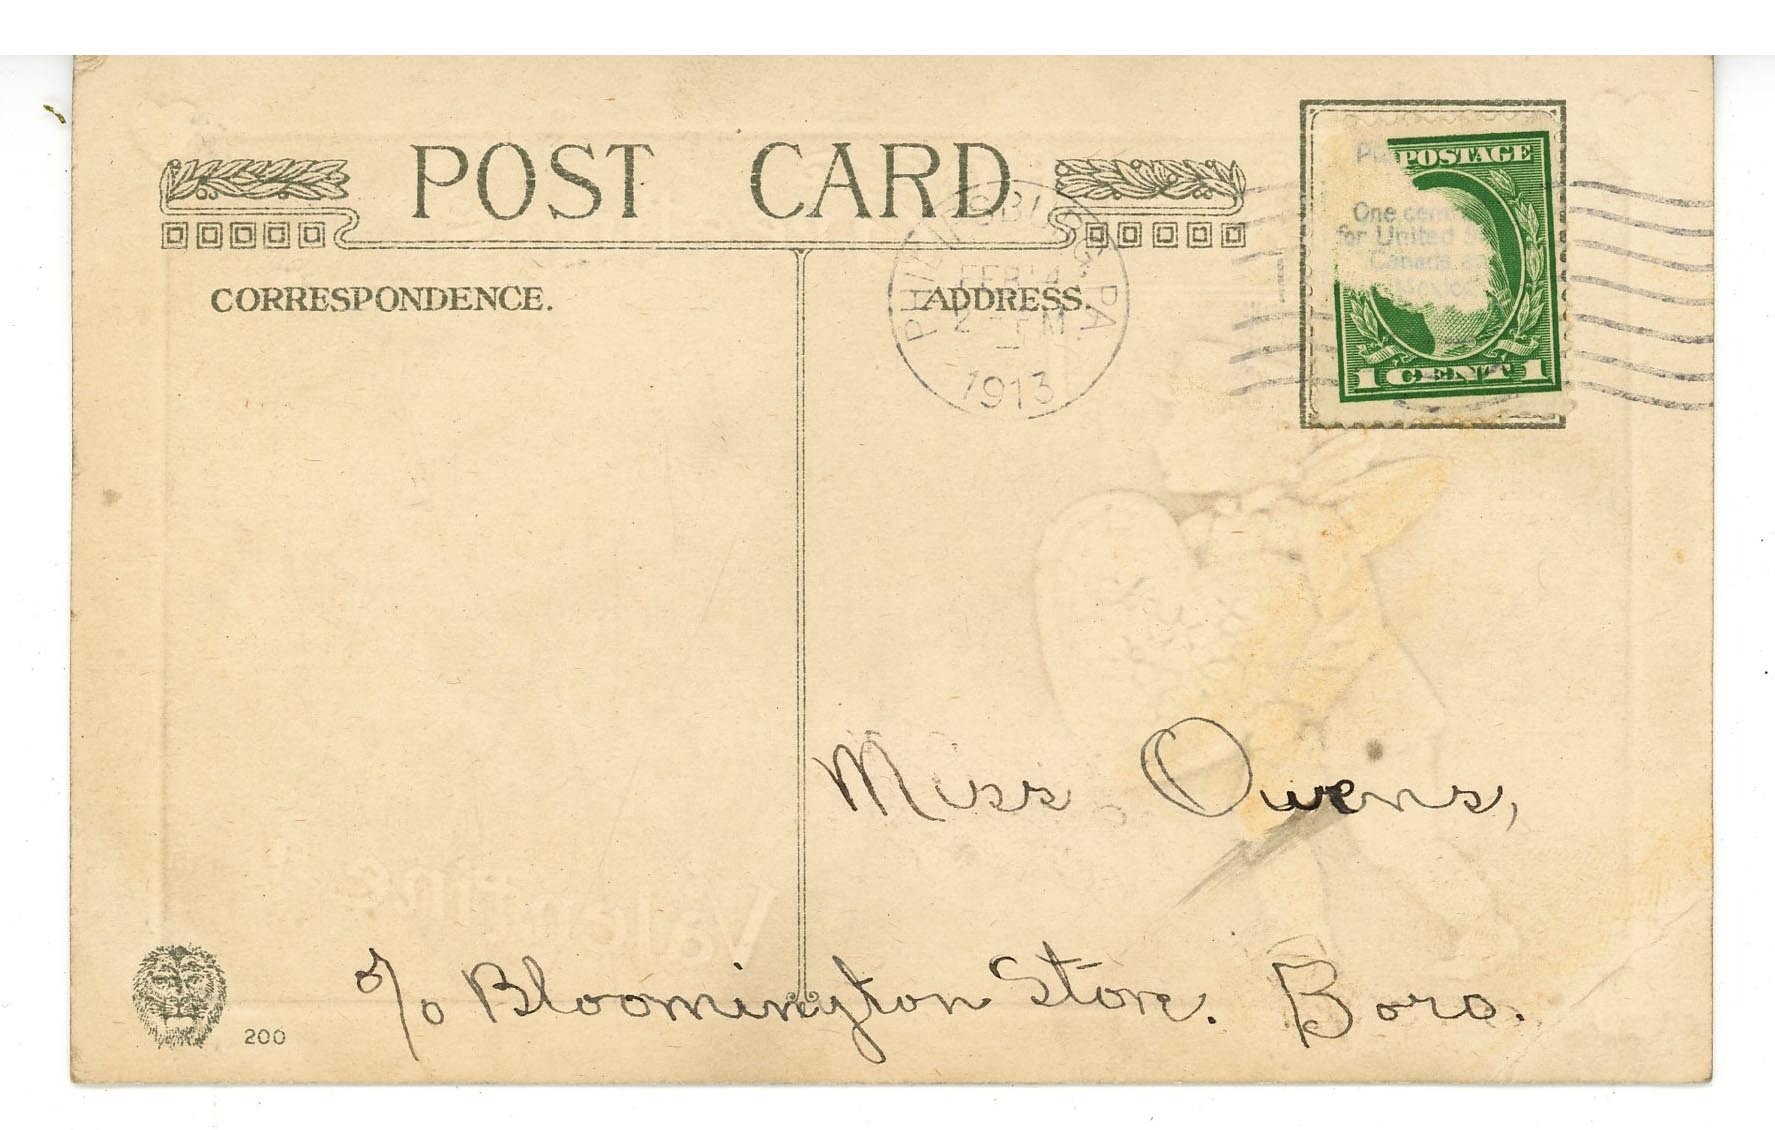 POST CARD
CORRESPONDENCE.
ADDRESS.
PHILIPSBURG, PA.
FEB 14
2 - PM
1913
POSTAGE
One cent
for United
Canada
Mexico
1 CENT 1
Miss Owens,
c/o Bloomington Store. Boro.
Valentine
200